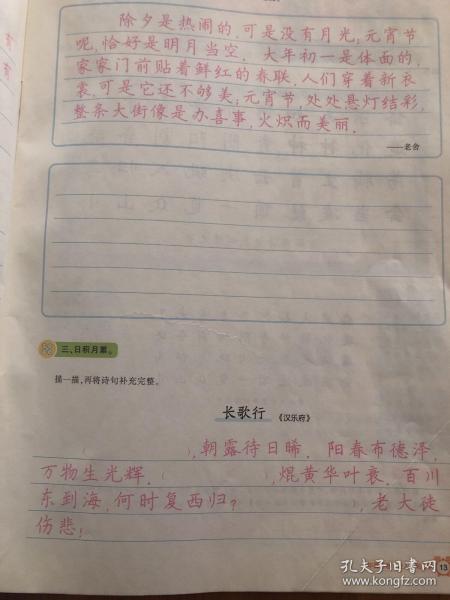 除夕是热闹的,可是没有月光;元宵节
呢,恰好是明月当空。大年初一是体面的,
家家门前贴着鲜红的春联,人们穿着新衣
裳,可是它还不够美;元宵节,处处悬灯结彩,
整条大街像是办喜事,火炽而美丽。
——老舍
三、日积月累。
描一描,再将诗句补充完整。
长歌行 《汉乐府》
( ),朝露待日晞。阳春布德泽,
万物生光辉。( ),焜黄华叶衰。百川
东到海,何时复西归?( ),老大徒
伤悲!
13
孔夫子旧书网
www.kongfz.com